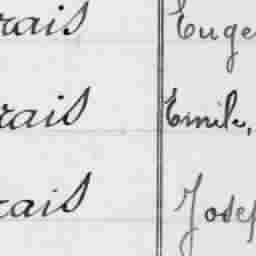 rais Euge
rais Emile,
rais Josep